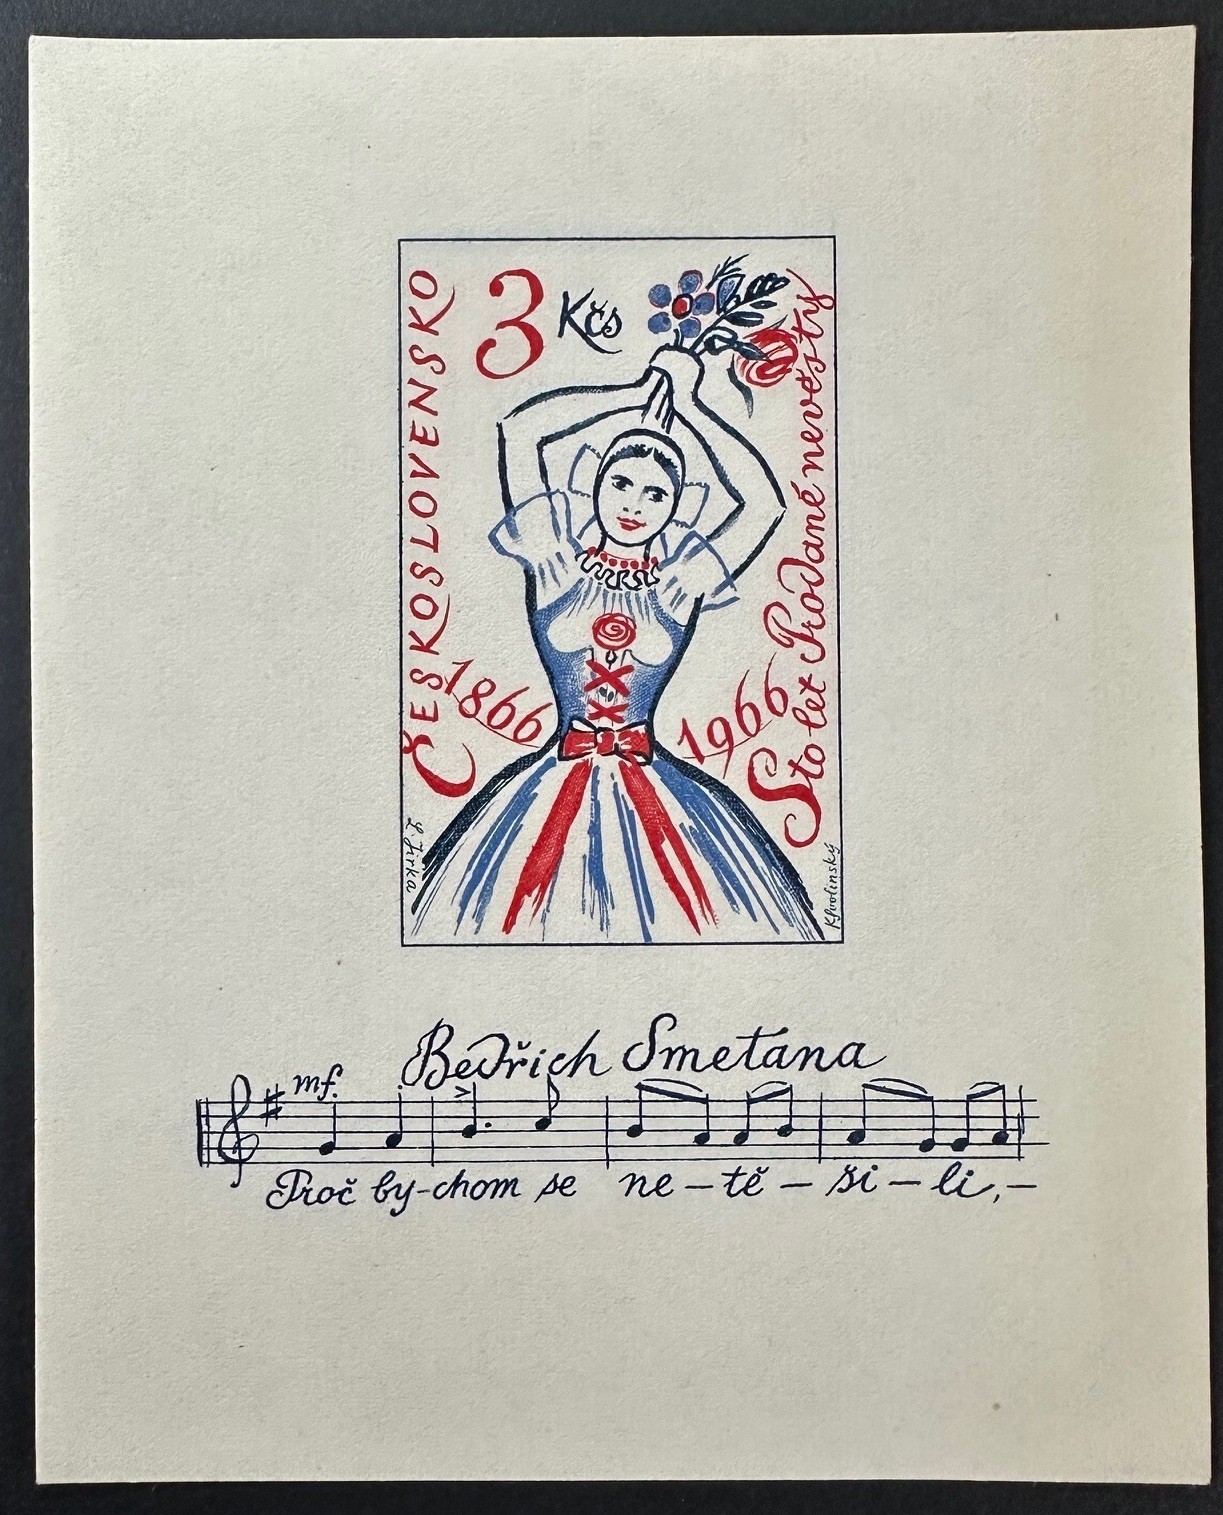 ČESKOSLOVENSKO
3 Kčs
Sto let Prodané nevěsty
1866
1966
L. Jirka
K. Svolinský
Bedřich Smetana
mf.
Proč by-chom se ne – tě – ši – li, –